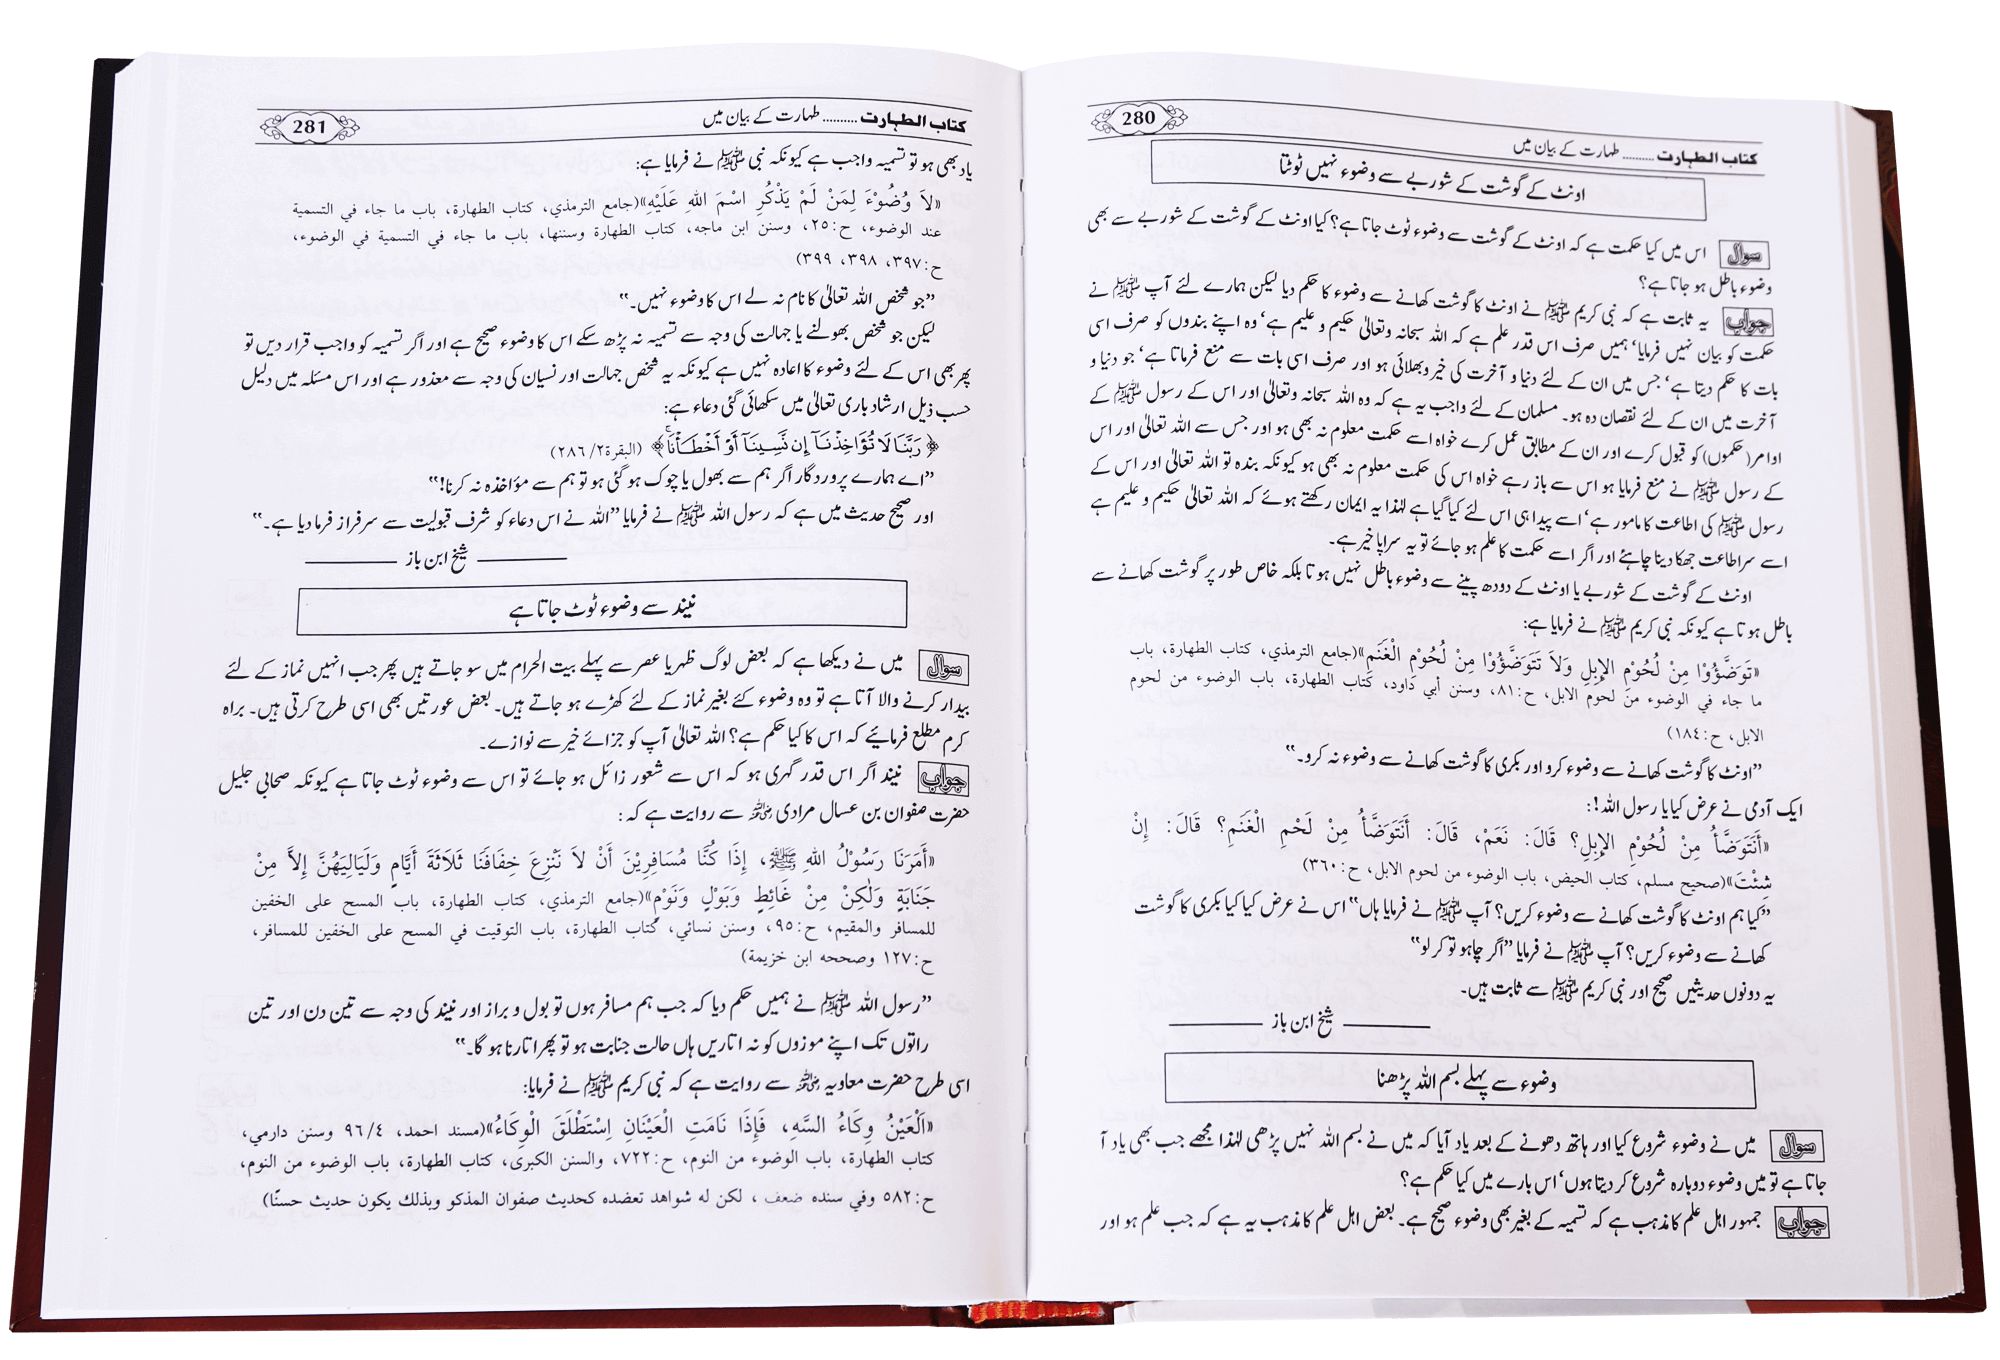 کتاب الطہارت ......... طہارت کے بیان میں
280
اونٹ کے گوشت کے شوربے سے وضوء نہیں ٹوٹتا
سوال اس میں کیا حکمت ہے کہ اونٹ کے گوشت سے وضوء ٹوٹ جاتا ہے؟ کیا اونٹ کے گوشت کے شوربے سے بھی
وضوء باطل ہو جاتا ہے؟
جواب یہ ثابت ہے کہ نبی کریم ﷺ نے اونٹ کا گوشت کھانے سے وضوء کا حکم دیا لیکن ہمارے لئے آپ ﷺ نے
حکمت کو بیان نہیں فرمایا‘ ہمیں صرف اس قدر علم ہے کہ اللہ سبحانہ وتعالیٰ حکیم و علیم ہے‘ وہ اپنے بندوں کو صرف اسی
بات کا حکم دیتا ہے‘ جس میں ان کے لئے دنیا و آخرت کی خیر وبھلائی ہو اور صرف اسی بات سے منع فرماتا ہے‘ جو دنیا و
آخرت میں ان کے لئے نقصان دہ ہو۔ مسلمان کے لئے واجب یہ ہے کہ وہ اللہ سبحانہ وتعالیٰ اور اس کے رسول ﷺ کے
اوامر (حکموں) کو قبول کرے اور ان کے مطابق عمل کرے خواہ اسے حکمت معلوم نہ بھی ہو اور جس سے اللہ تعالیٰ اور اس
کے رسول ﷺ نے منع فرمایا ہو اس سے باز رہے خواہ اس کی حکمت معلوم نہ بھی ہو کیونکہ بندہ تو اللہ تعالیٰ اور اس کے
رسول ﷺ کی اطاعت کا مامور ہے‘ اسے پیدا ہی اس لئے کیا گیا ہے لہٰذا یہ ایمان رکھتے ہوئے کہ اللہ تعالیٰ حکیم و علیم ہے
اسے سراطاعت جھکا دینا چاہئے اور اگر اسے حکمت کا علم ہو جائے تو یہ سراپا خیر ہے۔
اونٹ کے گوشت کے شوربے یا اونٹ کے دودھ پینے سے وضوء باطل نہیں ہوتا بلکہ خاص طور پر گوشت کھانے سے
باطل ہوتا ہے کیونکہ نبی کریم ﷺ نے فرمایا ہے:
«تَوَضَّؤُوْا مِنْ لُحُوْمِ الإِبِلِ وَلاَ تَتَوَضَّؤُوْا مِنْ لُحُوْمِ الْغَنَمِ»(جامع الترمذي، كتاب الطهارة، باب
ما جاء في الوضوء من لحوم الابل، ح:٨١، وسنن أبي داود، كتاب الطهارة، باب الوضوء من لحوم
الابل، ح:١٨٤)
”اونٹ کا گوشت کھانے سے وضوء کرو اور بکری کا گوشت کھانے سے وضوء نہ کرو۔“
ایک آدمی نے عرض کیا یا رسول اللہ!:
«أَنَتَوَضَّأُ مِنْ لُحُوْمِ الإِبِلِ؟ قَالَ: نَعَمْ، قَالَ: أَنَتَوَضَّأُ مِنْ لَحْمِ الْغَنَمِ؟ قَالَ: إِنْ
شِئْتَ»(صحيح مسلم، كتاب الحيض، باب الوضوء من لحوم الابل، ح:٣٦٠)
”کیا ہم اونٹ کا گوشت کھانے سے وضوء کریں؟ آپ ﷺ نے فرمایا ہاں“ اس نے عرض کیا کیا بکری کا گوشت
کھانے سے وضوء کریں؟ آپ ﷺ نے فرمایا ”اگر چاہو تو کر لو“
یہ دونوں حدیثیں صحیح اور نبی کریم ﷺ سے ثابت ہیں۔
شیخ ابن باز
وضوء سے پہلے بسم اللہ پڑھنا
سوال میں نے وضوء شروع کیا اور ہاتھ دھونے کے بعد یاد آیا کہ میں نے بسم اللہ نہیں پڑھی لہٰذا مجھے جب بھی یاد آ
جاتا ہے تو میں وضوء دوبارہ شروع کر دیتا ہوں‘ اس بارے میں کیا حکم ہے؟
جواب جمہور اہل علم کا مذہب ہے کہ تسمیہ کے بغیر بھی وضوء صحیح ہے۔ بعض اہل علم کا مذہب یہ ہے کہ جب علم ہو اور
کتاب الطہارت .......... طہارت کے بیان میں
281
یاد بھی ہو تو تسمیہ واجب ہے کیونکہ نبی ﷺ نے فرمایا ہے:
«لاَ وُضُوْءَ لِمَنْ لَمْ يَذْكُرِ اسْمَ اللهِ عَلَيْهِ»(جامع الترمذي، كتاب الطهارة، باب ما جاء في التسمية
عند الوضوء، ح:٢٥، وسنن ابن ماجه، كتاب الطهارة وسننها، باب ما جاء في التسمية في الوضوء،
ح:٣٩٧، ٣٩٨، ٣٩٩)
”جو شخص اللہ تعالیٰ کا نام نہ لے اس کا وضوء نہیں۔“
لیکن جو شخص بھولنے یا جہالت کی وجہ سے تسمیہ نہ پڑھ سکے اس کا وضوء صحیح ہے اور اگر تسمیہ کو واجب قرار دیں تو
پھر بھی اس کے لئے وضوء کا اعادہ نہیں ہے کیونکہ یہ شخص جہالت اور نسیان کی وجہ سے معذور ہے اور اس مسئلہ میں دلیل
حسب ذیل ارشاد باری تعالیٰ میں سکھائی گئی دعاء ہے:
﴿رَبَّنَا لَا تُؤَاخِذْنَآ إِن نَّسِينَآ أَوْ أَخْطَأْنَا﴾ (البقرة٢/٢٨٦)
”اے ہمارے پروردگار اگر ہم سے بھول یا چوک ہو گئی ہو تو ہم سے مؤاخذہ نہ کرنا!“
اور صحیح حدیث میں ہے کہ رسول اللہ ﷺ نے فرمایا ”اللہ نے اس دعاء کو شرف قبولیت سے سرفراز فرما دیا ہے۔“
شیخ ابن باز
نیند سے وضوء ٹوٹ جاتا ہے
سوال میں نے دیکھا ہے کہ بعض لوگ ظہر یا عصر سے پہلے بیت الحرام میں سو جاتے ہیں پھر جب انہیں نماز کے لئے
بیدار کرنے والا آتا ہے تو وہ وضوء کئے بغیر نماز کے لئے کھڑے ہو جاتے ہیں۔ بعض عورتیں بھی اسی طرح کرتی ہیں۔ براہ
کرم مطلع فرمائیے کہ اس کا کیا حکم ہے؟ اللہ تعالیٰ آپ کو جزائے خیر سے نوازے۔
جواب نیند اگر اس قدر گہری ہو کہ اس سے شعور زائل ہو جائے تو اس سے وضوء ٹوٹ جاتا ہے کیونکہ صحابی جلیل
حضرت صفوان بن عسال مرادی رضی اللہ عنہ سے روایت ہے کہ:
«أَمَرَنَا رَسُوْلُ اللهِ ﷺ، إِذَا كُنَّا مُسَافِرِيْنَ أَنْ لاَ نَنْزِعَ خِفَافَنَا ثَلاَثَةَ أَيَّامٍ وَلَيَالِيَهُنَّ إِلاَّ مِنْ
جَنَابَةٍ وَلٰكِنْ مِنْ غَائِطٍ وَبَوْلٍ وَنَوْمٍ»(جامع الترمذي، كتاب الطهارة، باب المسح على الخفين
للمسافر والمقيم، ح:٩٥، وسنن نسائي، كتاب الطهارة، باب التوقيت في المسح على الخفين للمسافر،
ح:١٢٧ وصححه ابن خزيمة)
”رسول اللہ ﷺ نے ہمیں حکم دیا کہ جب ہم مسافر ہوں تو بول و براز اور نیند کی وجہ سے تین دن اور تین
راتوں تک اپنے موزوں کو نہ اتاریں ہاں حالت جنابت ہو تو پھر اتارنا ہو گا۔“
اسی طرح حضرت معاویہ رضی اللہ عنہ سے روایت ہے کہ نبی کریم ﷺ نے فرمایا:
«اَلْعَيْنُ وِكَاءُ السَّهِ، فَإِذَا نَامَتِ الْعَيْنَانِ اِسْتَطْلَقَ الْوِكَاءُ»(مسند احمد، ٤/٩٦ وسنن دارمي،
كتاب الطهارة، باب الوضوء من النوم، ح:٧٢٢، والسنن الكبرى، كتاب الطهارة، باب الوضوء من النوم،
ح:٥٨٢ وفي سنده ضعف ، لكن له شواهد تعضده كحديث صفوان المذكو وبذلك يكون حديث حسنًا)